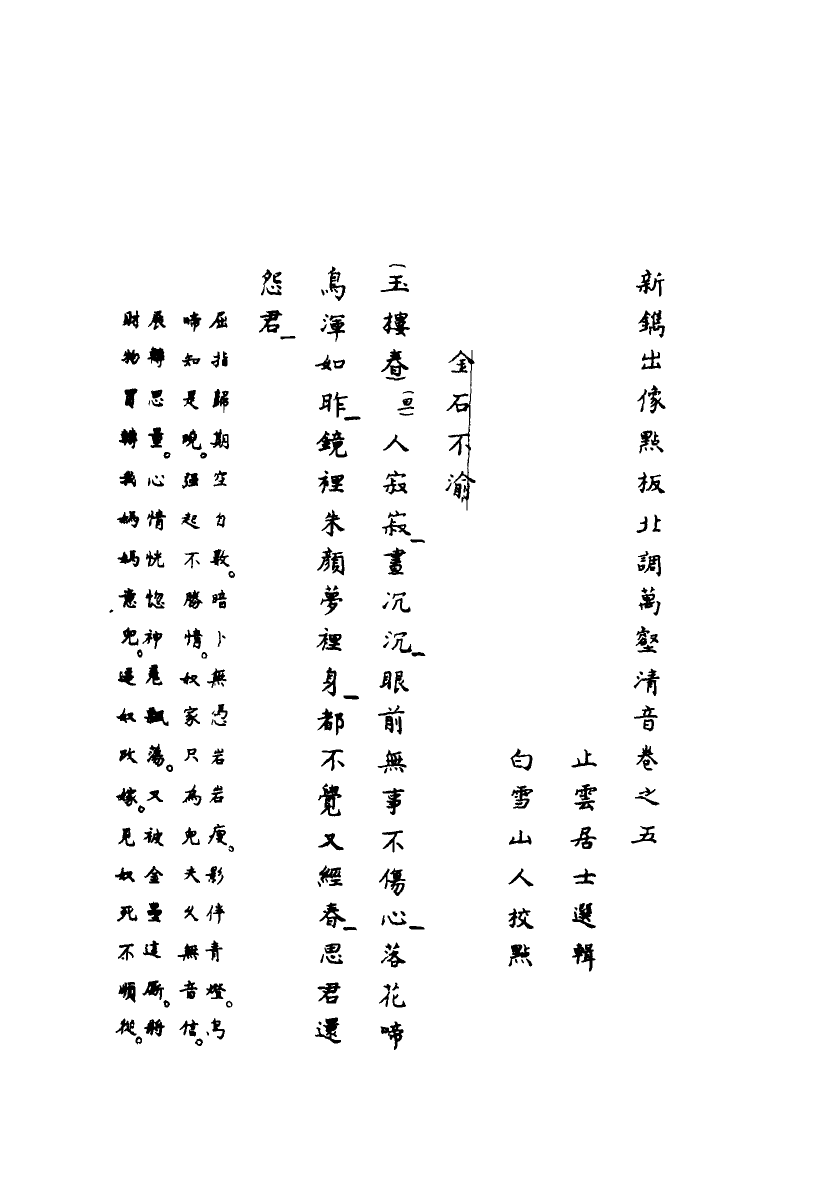 新鐫出像點板北調萬壑清音卷之五
止雲居士選輯
白雪山人校點
金石不渝
(玉樓春)(旦)人寂寂晝沉沉眼前無事不傷心落花啼
鳥渾如昨鏡裡朱顏夢裡身都不覺又經春思君還
怨君
屈指歸期空自數。暗卜無憑岩岩瘦。影伴青燈。鳥
啼知是曉。强起不勝情。奴家只為兒夫久無音信。
展轉思量。心情恍惚神魂飄蕩。又被金曼這厮。將
財物買轉我媽媽意兒。逼奴改嫁。見奴死不順從。